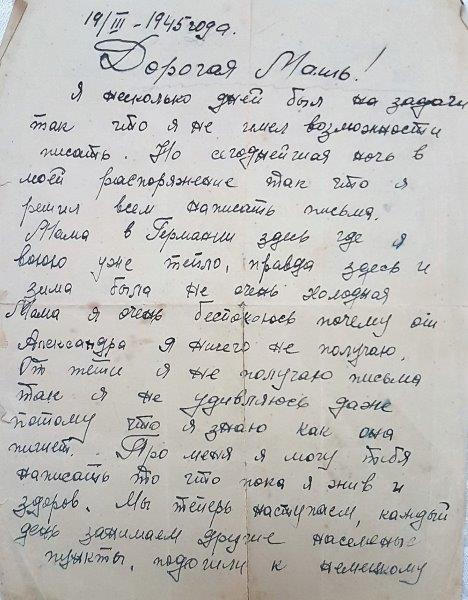 19/III - 1945 года.
Дорогая Мать!
Я несколько дней был на задачи
так что я не имел возможности
писать. Но сегоднейшая ночь в
моей распоряжение так что я
решил всем написать письма.
Мама в Германии здесь где я
воюю уже тепло, правда здесь и
зима была не очень холодная
Мама я очень беспокоюсь почему от
Александра я ничего не получаю.
От тёти я не получаю письма
так я не удивляюсь даже
потому что я знаю как она
пишет. Про меня я могу тебя
написать то что пока я жив и
здоров. Мы теперь наступаем, каждый
день занимаем другие населеные
пункты, подошли к немецкому